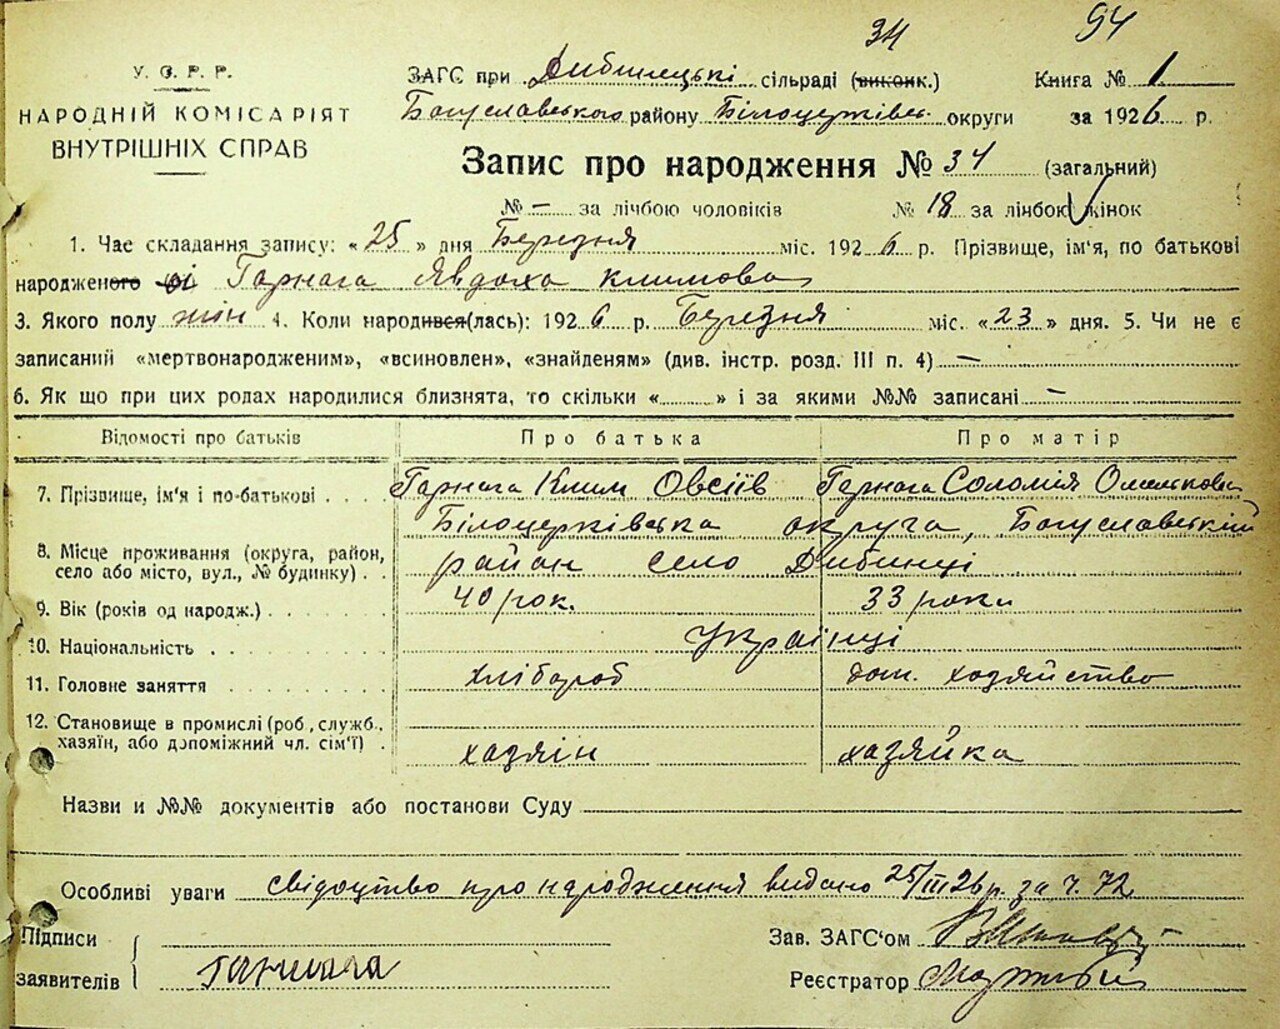 34 94
У. С. Р. Р.
НАРОДНІЙ КОМІСАРІЯТ
ВНУТРІШНІХ СПРАВ
ЗАГС при Дибинецькі сільраді (виконк.) Книга № 1
Богуславського району Білоцерківсь. округи за 1926 р.
Запис про народження № 34 (загальний)
№ — за лічбою чоловіків № 18 за лічбою жінок
1. Час складання запису: «25» дня Березня міс. 1926 р. Прізвище, ім'я, по батькові
народженого ої Гарнага Явдоха Климова
3. Якого полу жін 4. Коли народився(лась): 1926 р. Березня міс. «23» дня. 5. Чи не є
записаний «мертвонародженим», «всиновлен», «знайденям» (див. інстр. розд. III п. 4) —
6. Як що при цих родах народилися близнята, то скільки «......» і за якими №№ записані —
Відомості про батьків Про батька Про матір
7. Прізвище, ім'я і по-батькові . . . Гарнага Клим Овсіїв Гарнага Соломія Омелькова
Білоцерківська округа, Богуславський
8. Місце проживання (округа, район,
село або місто, вул., № будинку) . . район село Дибинці
9. Вік (років од народж.) . . . . . . 40 рок. 33 роки
10. Національність . . . . . . . . . Українці
11. Головне заняття . . . . . . . . хлібороб дом. хозяйство
12. Становище в промислі (роб., служб.,
хазяїн, або допоміжний чл. сім'ї) . хазяін хазяйка
Назви и №№ документів або постанови Суду
Особливі уваги свідоцтво про народження видано 25/III 26 р. за ч. 72
Підписи Зав. ЗАГС'ом
заявителів Гарнага Реєстратор